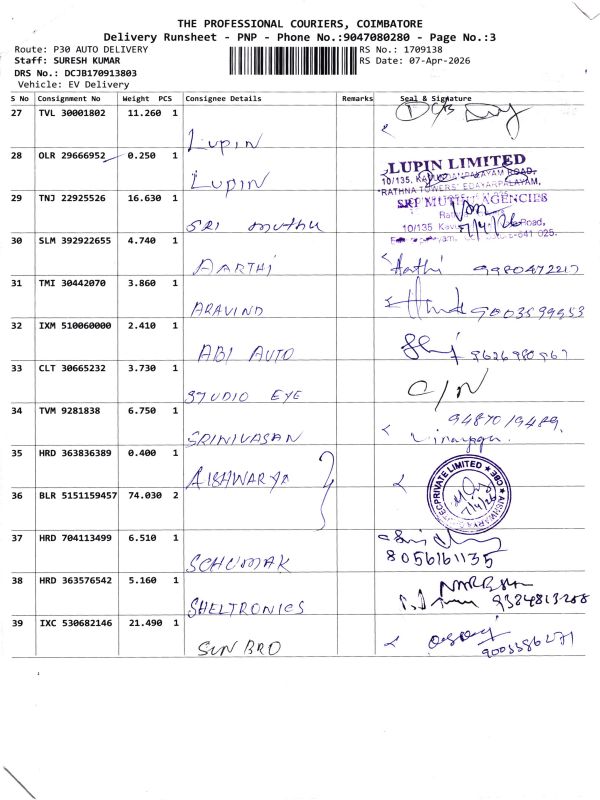 THE PROFESSIONAL COURIERS, COIMBATORE
Delivery Runsheet - PNP - Phone No.:9047080280 - Page No.:3
Route: P30 AUTO DELIVERY
RS No.: 1709138
Staff: SURESH KUMAR
RS Date: 07-Apr-2026
DRS No.: DCJB170913803
Vehicle: EV Delivery
S No Consignment No Weight PCS Consignee Details Remarks Seal & Signature
27 TVL 30001802 11.260 1
Lupin
28 OLR 29666952 0.250 1
Lupin
LUPIN LIMITED
10/135, KAVUNDAMPALAYAM ROAD,
"RATHNA TOWERS" EDAYARPALAYAM,
29 TNJ 22925526 16.630 1
SRI muthu
SRI MUTHU AGENCIES
10/135 Road,
7/4/26
641 025.
30 SLM 392922655 4.740 1
AARTHI
Aathi 9980472217
31 TMI 30442070 3.860 1
ARAVIND
9003599953
32 IXM 510060000 2.410 1
ABI AUTO
9626980967
33 CLT 30665232 3.730 1
STUDIO EYE
C/N
34 TVM 9281838 6.750 1
SRINIVASAN
9487019489.
35 HRD 363836389 0.400 1
AISHWARYA
36 BLR 5151159457 74.030 2
PRIVATE LIMITED
CBE
7/4/26
37 HRD 704113499 6.510 1
SCHUMAK
8056161135
38 HRD 363576542 5.160 1
SHELTRONICS
9384813288
39 IXC 530682146 21.490 1
SUN BRO
9003586271